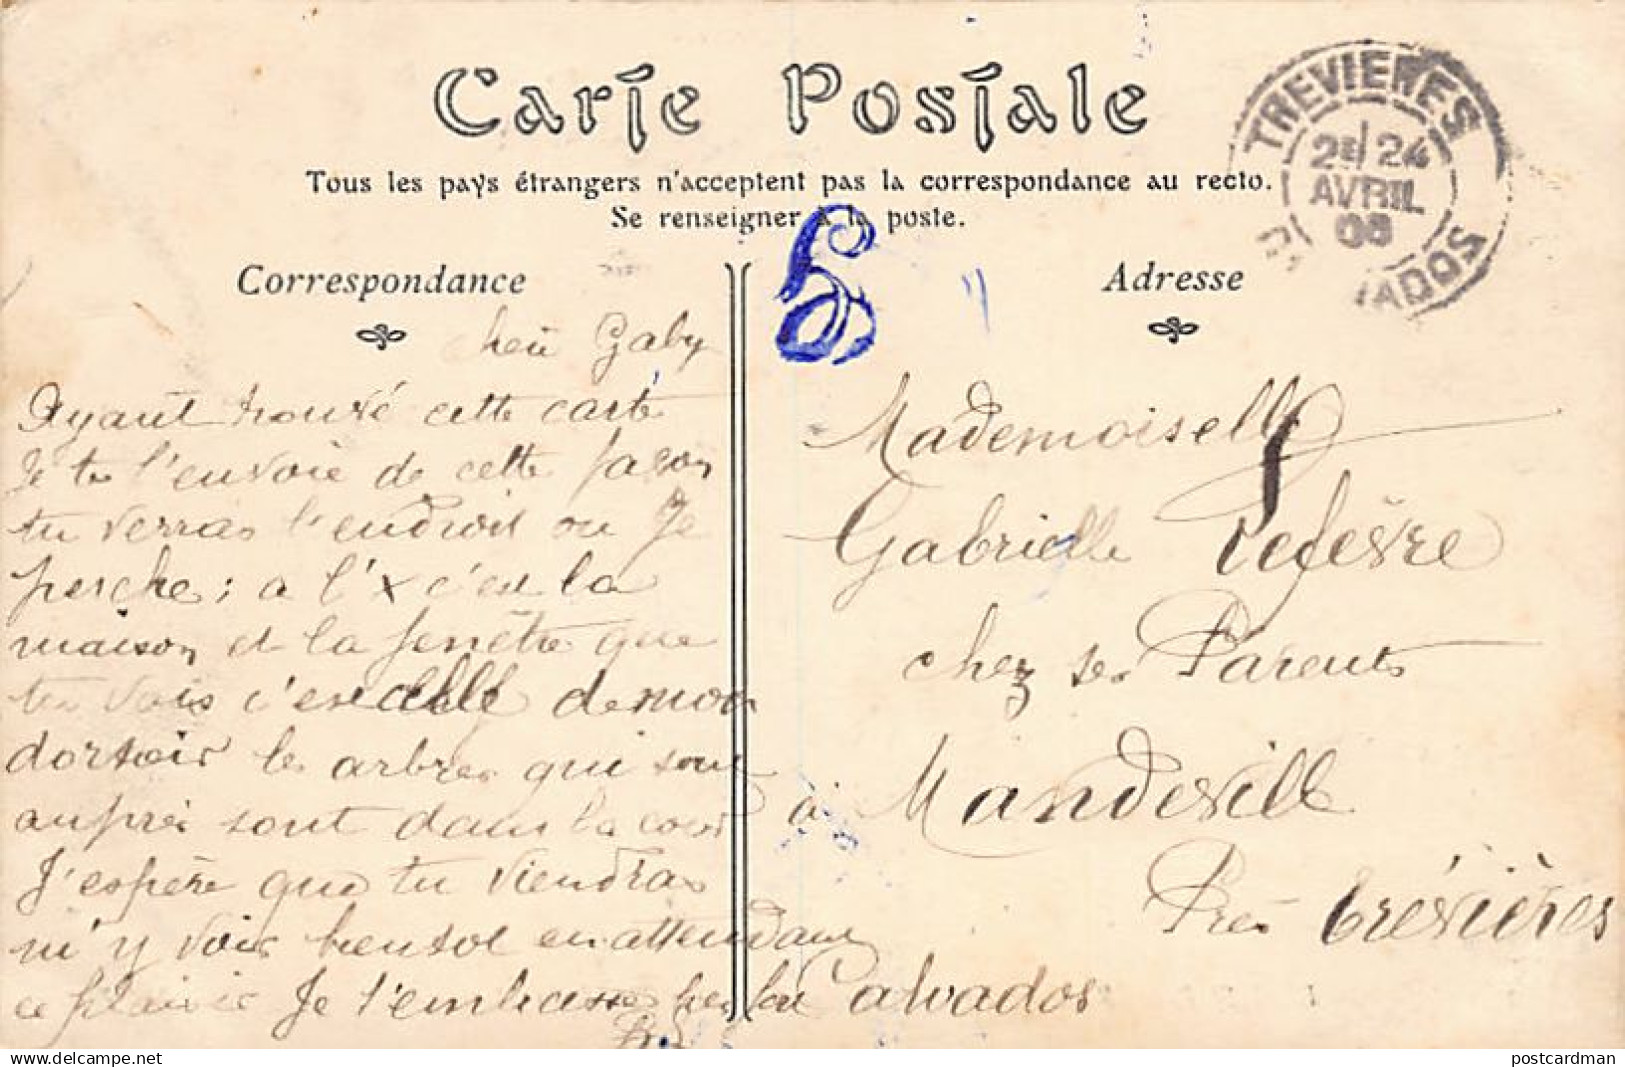 Carte Postale
Tous les pays étrangers n'acceptent pas la correspondance au recto.
Se renseigner à la poste.
TREVIERES
2E 24
AVRIL
08
Correspondance
Adresse
Gaby
Ayant trouvé cette carte
Je te l'envoie de cette façon
tu verras l'endroit ou Je
perche; a l'x c'est la
maison et la fenêtre que
tu vois c'est celle de mon
dortoir les arbres qui sont
auprès sont dans la cour
J'espère que tu viendras
m'y voir bientot en attendant
ce plaisir Je t'embrasse
Mademoiselle
Gabrielle Lefèvre
chez ses Parents
à Mandeville
Près Trévières
Calvados
delcampe.net
postcardman